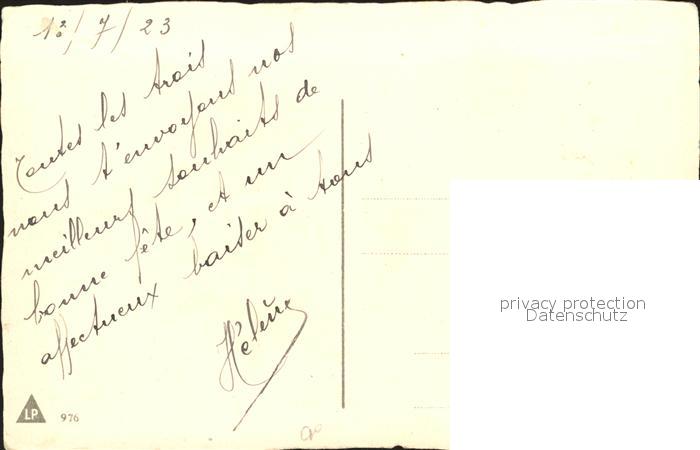 12/7/23
Toutes les trois
nous t'envoyons nos
meilleurs souhaits de
bonne fête, et un
affectueux baiser à tous
Hélène
LP 976
privacy protection
Datenschutz